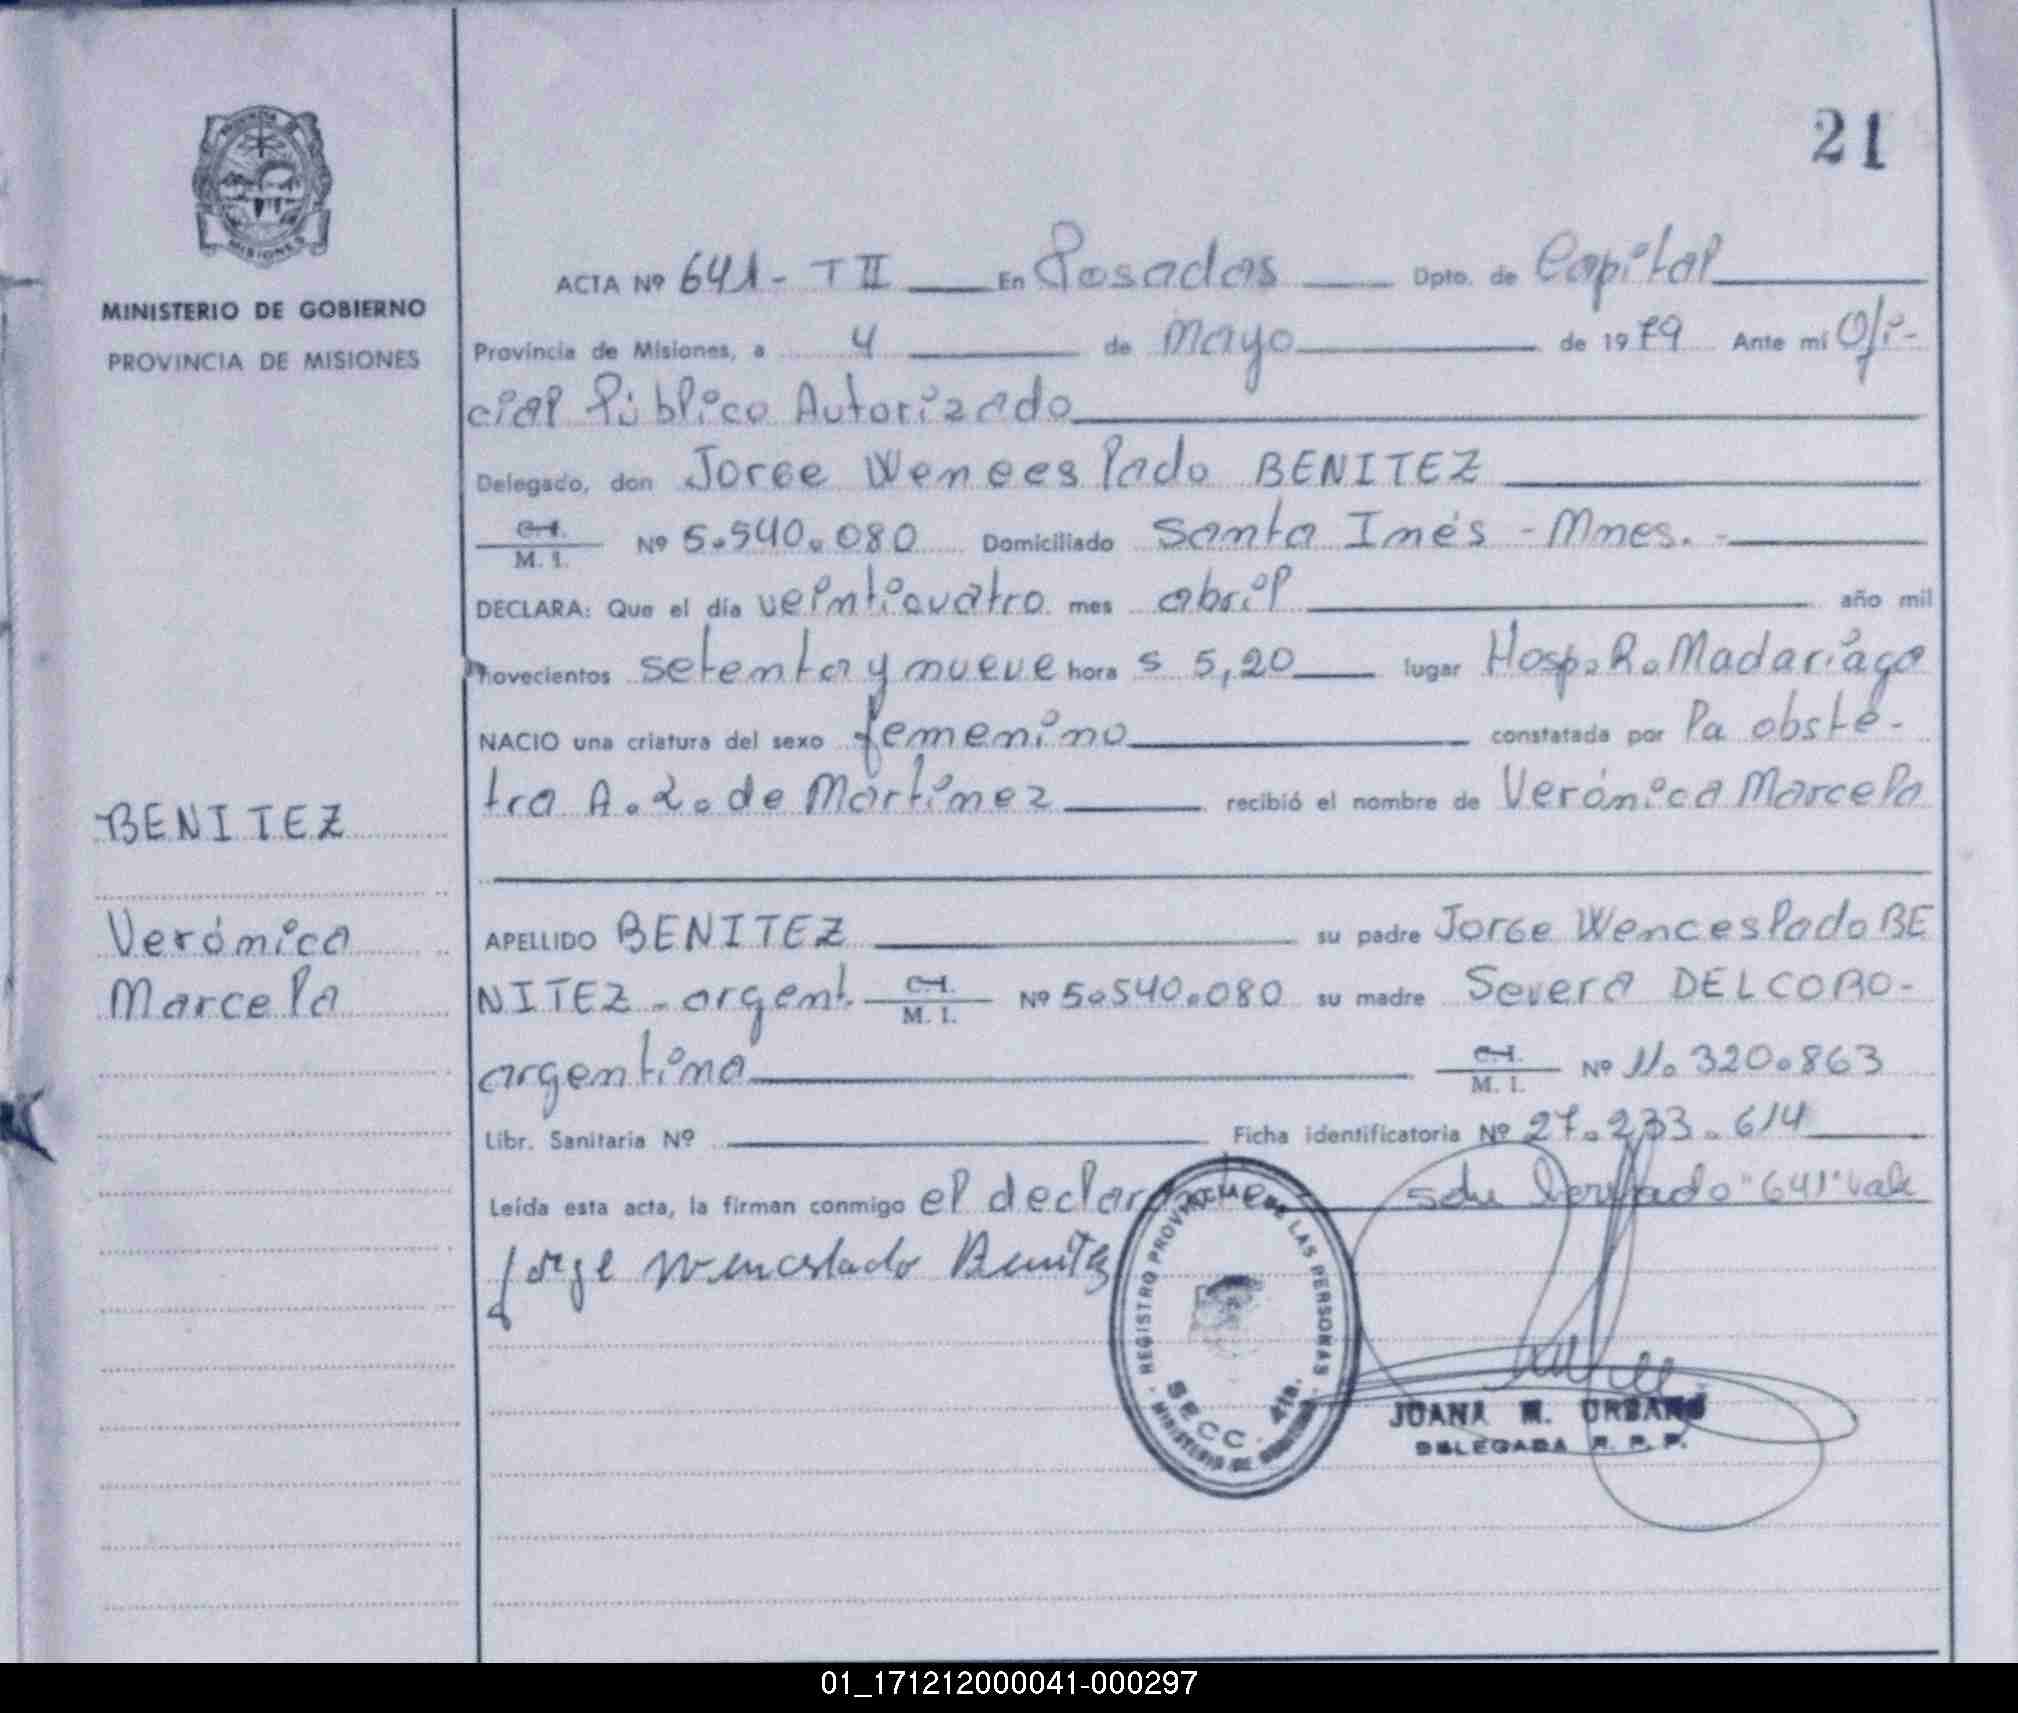 21
MINISTERIO DE GOBIERNO
PROVINCIA DE MISIONES
BENITEZ
Verónica
Marcela
ACTA Nº 641- T II En Posadas Dpto. de Capital
Provincia de Misiones, a 4 de Mayo de 1979 Ante mí Ofi-
cial Público Autorizado
Delegado, don Jorge Wenceslado BENITEZ
C.I. M. I. Nº 5.540.080 Domiciliado Santa Inés - Mnes. -
DECLARA: Que el día veinticuatro mes abril año mil
novecientos setenta y nueve hora s 5,20 lugar Hosp. R. Madariaga
NACIO una criatura del sexo femenino constatada por la obsté-
tra A. L. de Martinez recibió el nombre de Verónica Marcela
APELLIDO BENITEZ su padre Jorge Wenceslado BE
NITEZ - argent. C.I. M. I. Nº 5.540.080 su madre Severa DELCORO-
argentina C.I. M. I. Nº 11.320.863
Libr. Sanitaria Nº Ficha identificatoria Nº 27.233.614
Leída esta acta, la firman conmigo el declarante "641" vale
Jorge Wenceslado Benitez
REGISTRO PROVINCIAL DE LAS PERSONAS
SECC. 4ta.
MINISTERIO DE GOBIERNO
JUANA M. URBANO
DELEGADA R. P. P.
01_171212000041-000297